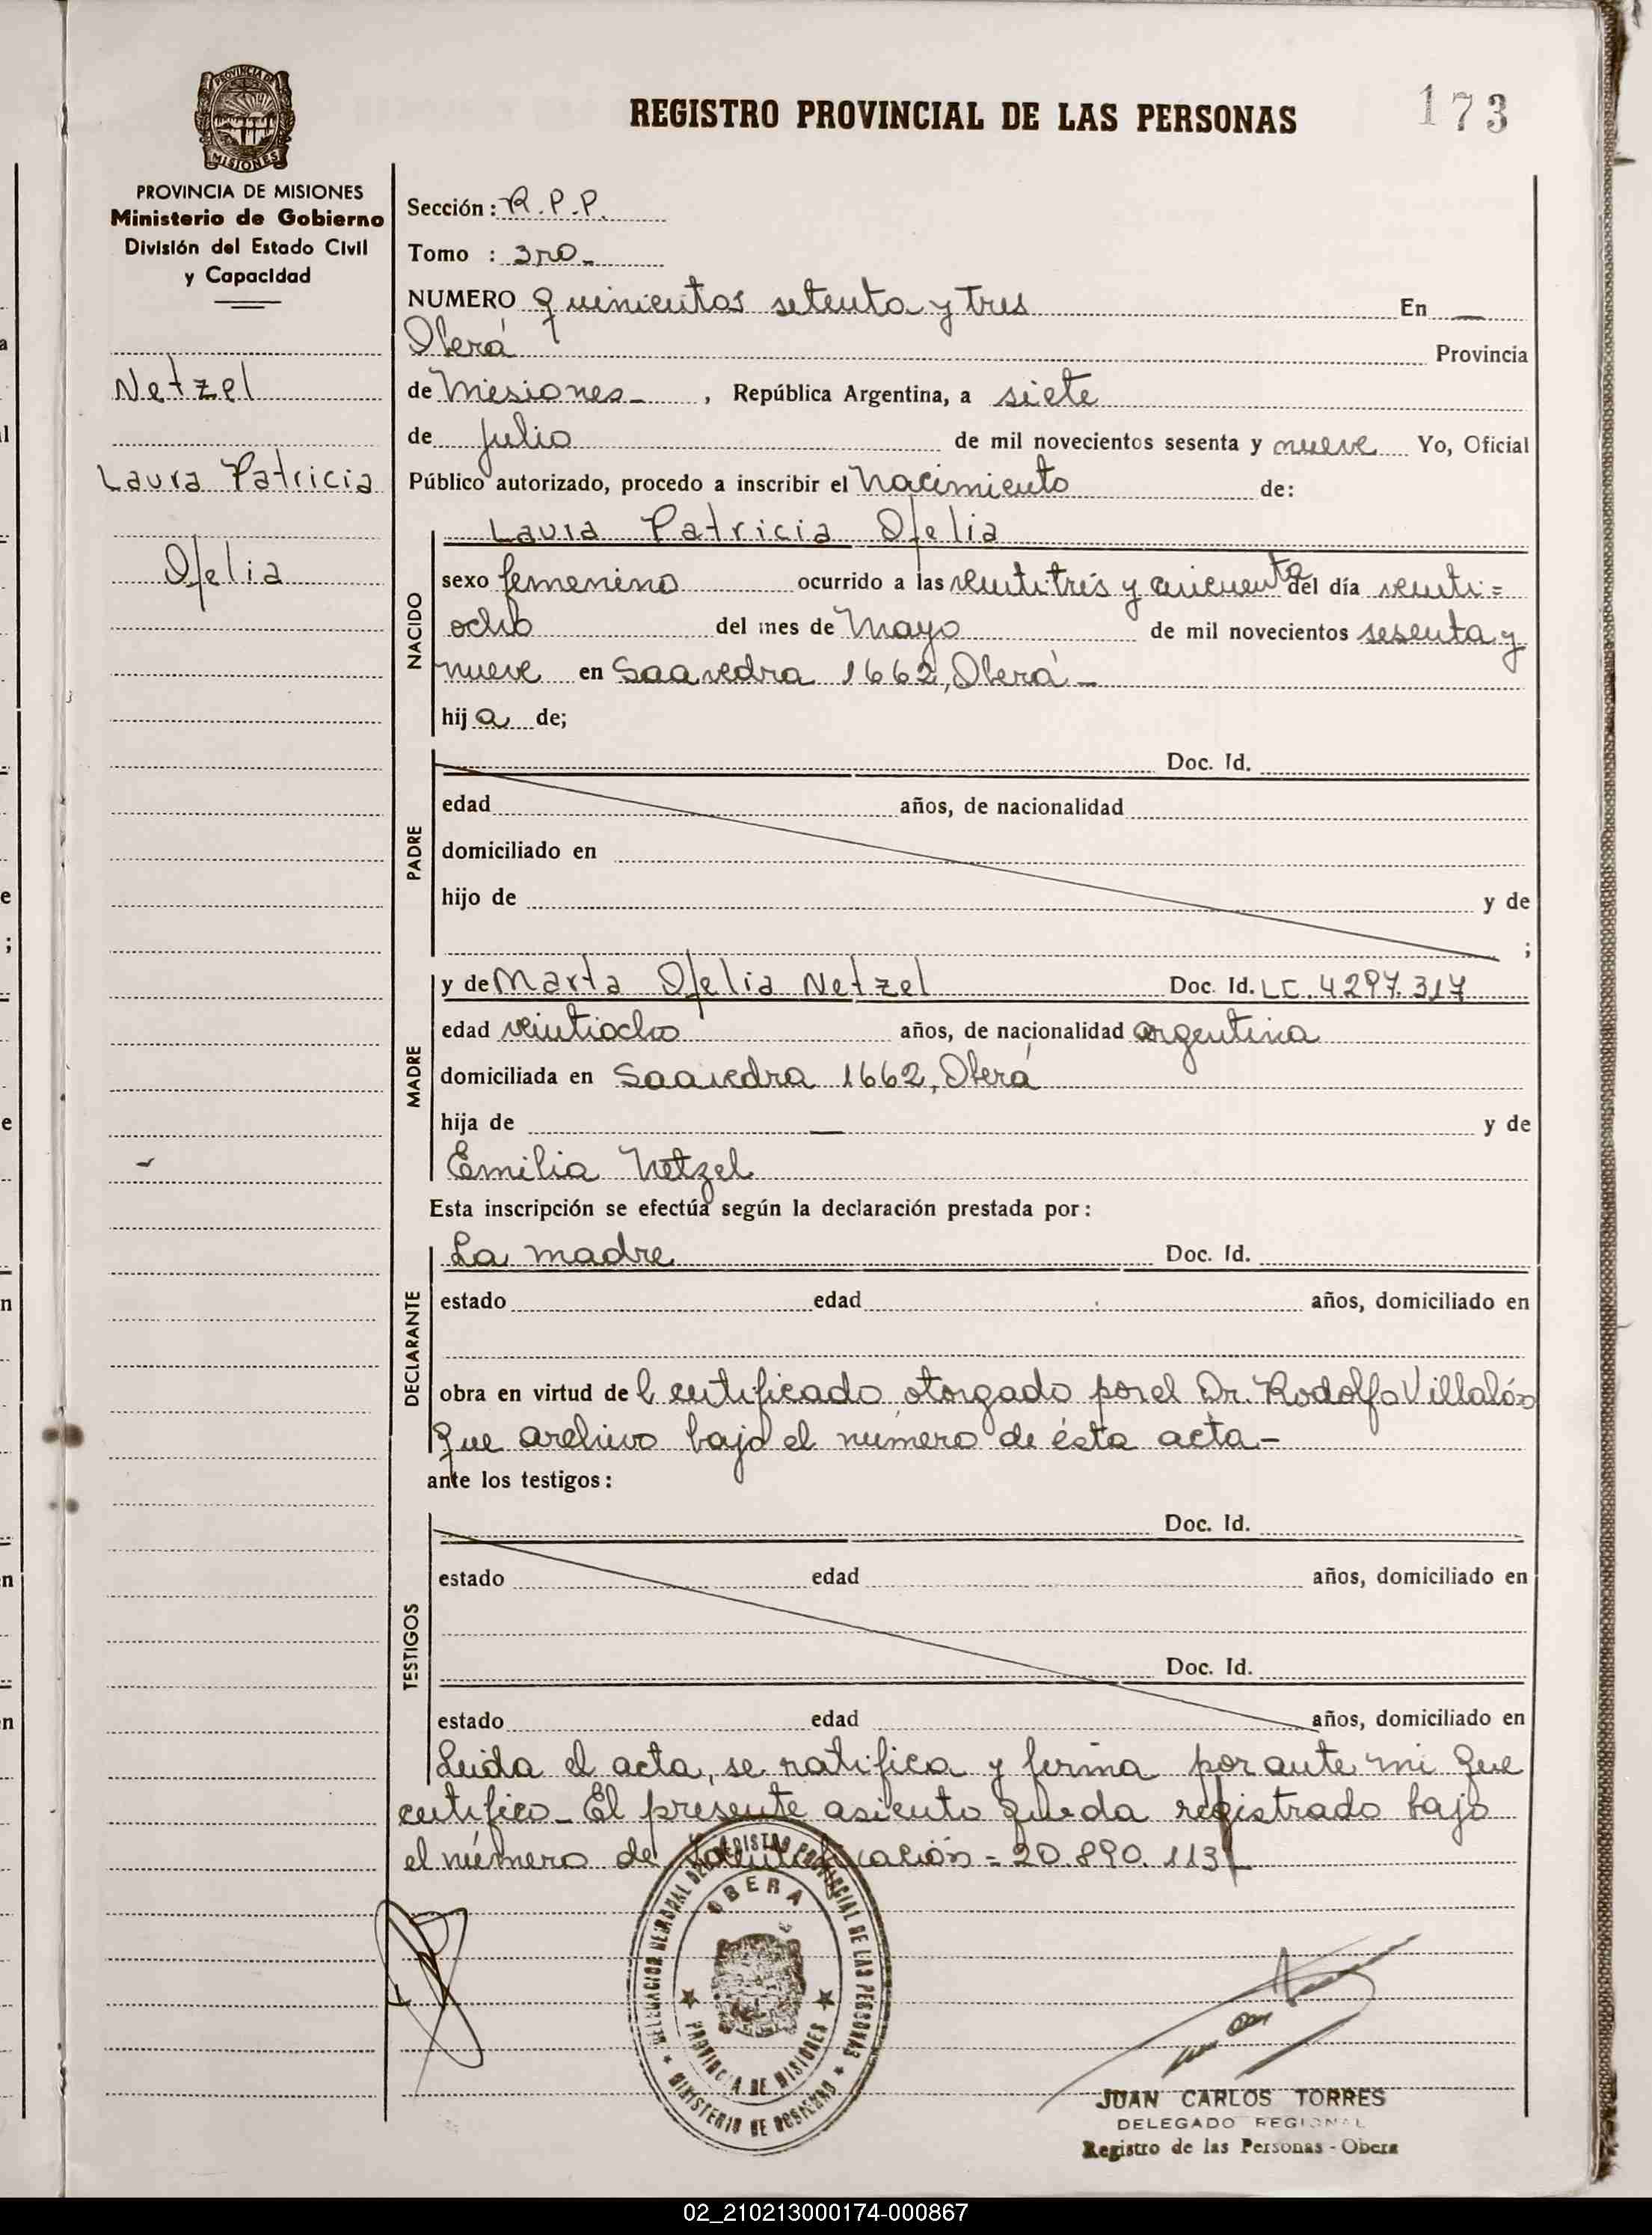 REGISTRO PROVINCIAL DE LAS PERSONAS
173
PROVINCIA DE MISIONES
MISIONES
PROVINCIA DE MISIONES
Ministerio de Gobierno
División del Estado Civil
y Capacidad
Netzel
Laura Patricia
Ofelia
Sección: R.P.P.
Tomo : 3ro.-
NUMERO Quinientos setenta y tres En —
Oberá Provincia
de Misiones-, República Argentina, a siete
de julio de mil novecientos sesenta y nueve Yo, Oficial
Público autorizado, procedo a inscribir el Nacimiento de:
Laura Patricia Ofelia
NACIDO
sexo femenino ocurrido a las veintitrés y cincuenta del día veinti=
ocho del mes de Mayo de mil novecientos sesenta y
nueve en Saavedra 1662, Oberá-
hija de;
PADRE
Doc. Id.
edad años, de nacionalidad
domiciliado en
hijo de y de
;
MADRE
y de Marta Ofelia Netzel Doc. Id. LC. 4297.317
edad veintiocho años, de nacionalidad argentina
domiciliada en Saavedra 1662, Oberá
hija de — y de
Emilia Netzel
Esta inscripción se efectúa según la declaración prestada por:
DECLARANTE
La madre Doc. Id.
estado edad años, domiciliado en
obra en virtud del certificado otorgado por el Dr. Rodolfo Villalón
Que archivo bajo el número de ésta acta-
ante los testigos:
TESTIGOS
Doc. Id.
estado edad años, domiciliado en
Doc. Id.
estado edad años, domiciliado en
Leida el acta, se ratifica y firma por ante mi Que
certifico- El presente asiento Queda registrado bajo
el número de Identificación = 20.890.113-
DELEGACION REGIONAL DEL REGISTRO PROVINCIAL DE LAS PERSONAS
MINISTERIO DE GOBIERNO
OBERA
PROVINCIA DE MISIONES
JUAN CARLOS TORRES
DELEGADO REGIONAL
Registro de las Personas - Obera
02_210213000174-000867